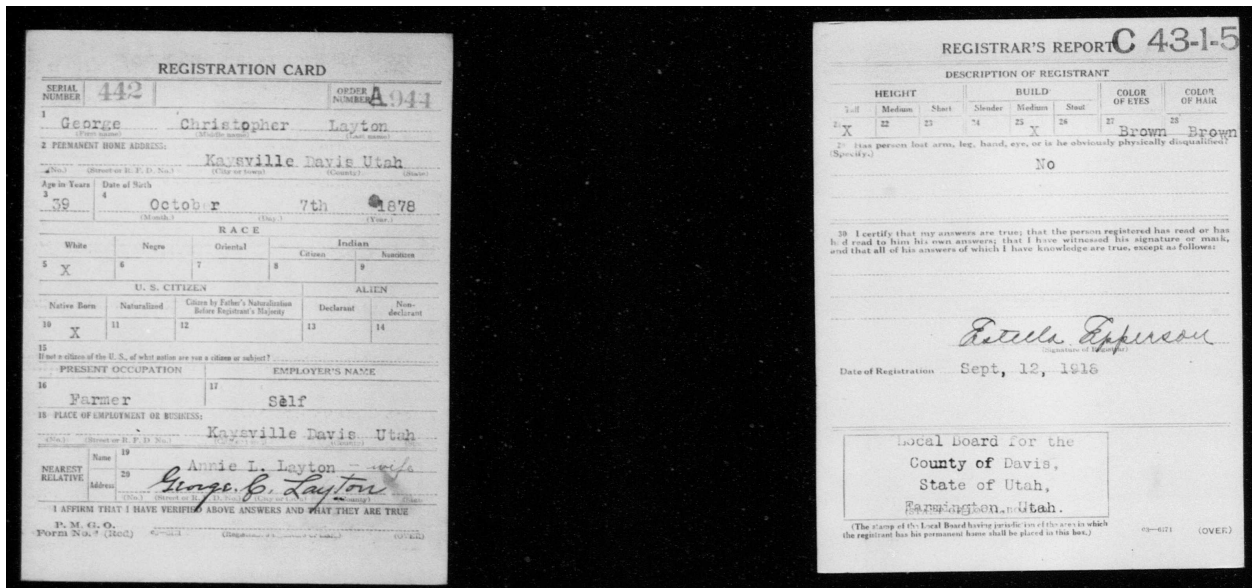 REGISTRATION CARD
SERIAL NUMBER 442 ORDER NUMBER A 944
1 George Christopher Layton
(First name) (Middle name) (Last name)
2 PERMANENT HOME ADDRESS:
Kaysville Davis Utah
(No.) (Street or R. F. D. No.) (City or town) (County) (State)
Age in Years Date of Birth
3 39 4 October 7th 1878
(Month.) (Day.) (Year.)
RACE
White Negro Oriental Indian
Citizen Noncitizen
5 X 6 7 8 9
U. S. CITIZEN ALIEN
Native Born Naturalized Citizen by Father's Naturalization Before Registrant's Majority Declarant Non-declarant
10 X 11 12 13 14
15
If not a citizen of the U. S., of what nation are you a citizen or subject?
PRESENT OCCUPATION EMPLOYER'S NAME
16 Farmer 17 Self
18 PLACE OF EMPLOYMENT OR BUSINESS:
Kaysville Davis Utah
(No.) (Street or R. F. D. No.) (County) (State)
NEAREST RELATIVE Name 19 Annie L. Layton - wife
Address 20 George C. Layton
(No.) (Street or R. F. D. No.) (County)
I AFFIRM THAT I HAVE VERIFIED ABOVE ANSWERS AND THAT THEY ARE TRUE
P. M. G. O.
Form No. 1 (Red) (OVER)
REGISTRAR'S REPORT C 43-1-5
DESCRIPTION OF REGISTRANT
HEIGHT BUILD COLOR OF EYES COLOR OF HAIR
Tall Medium Short Slender Medium Stout
21 X 22 23 24 25 X 26 27 Brown 28 Brown
29 Has person lost arm, leg, hand, eye, or is he obviously physically disqualified?
(Specify.)
No
30 I certify that my answers are true; that the person registered has read or has
had read to him his own answers; that I have witnessed his signature or mark,
and that all of his answers of which I have knowledge are true, except as follows:
Estella Epperson
(Signature of Registrar)
Date of Registration Sept, 12, 1918
Local Board for the
County of Davis,
State of Utah,
Farmington, Utah.
(The stamp of the Local Board having jurisdiction of the area in which
the registrant has his permanent home shall be placed in this box.)
03-6171 (OVER)